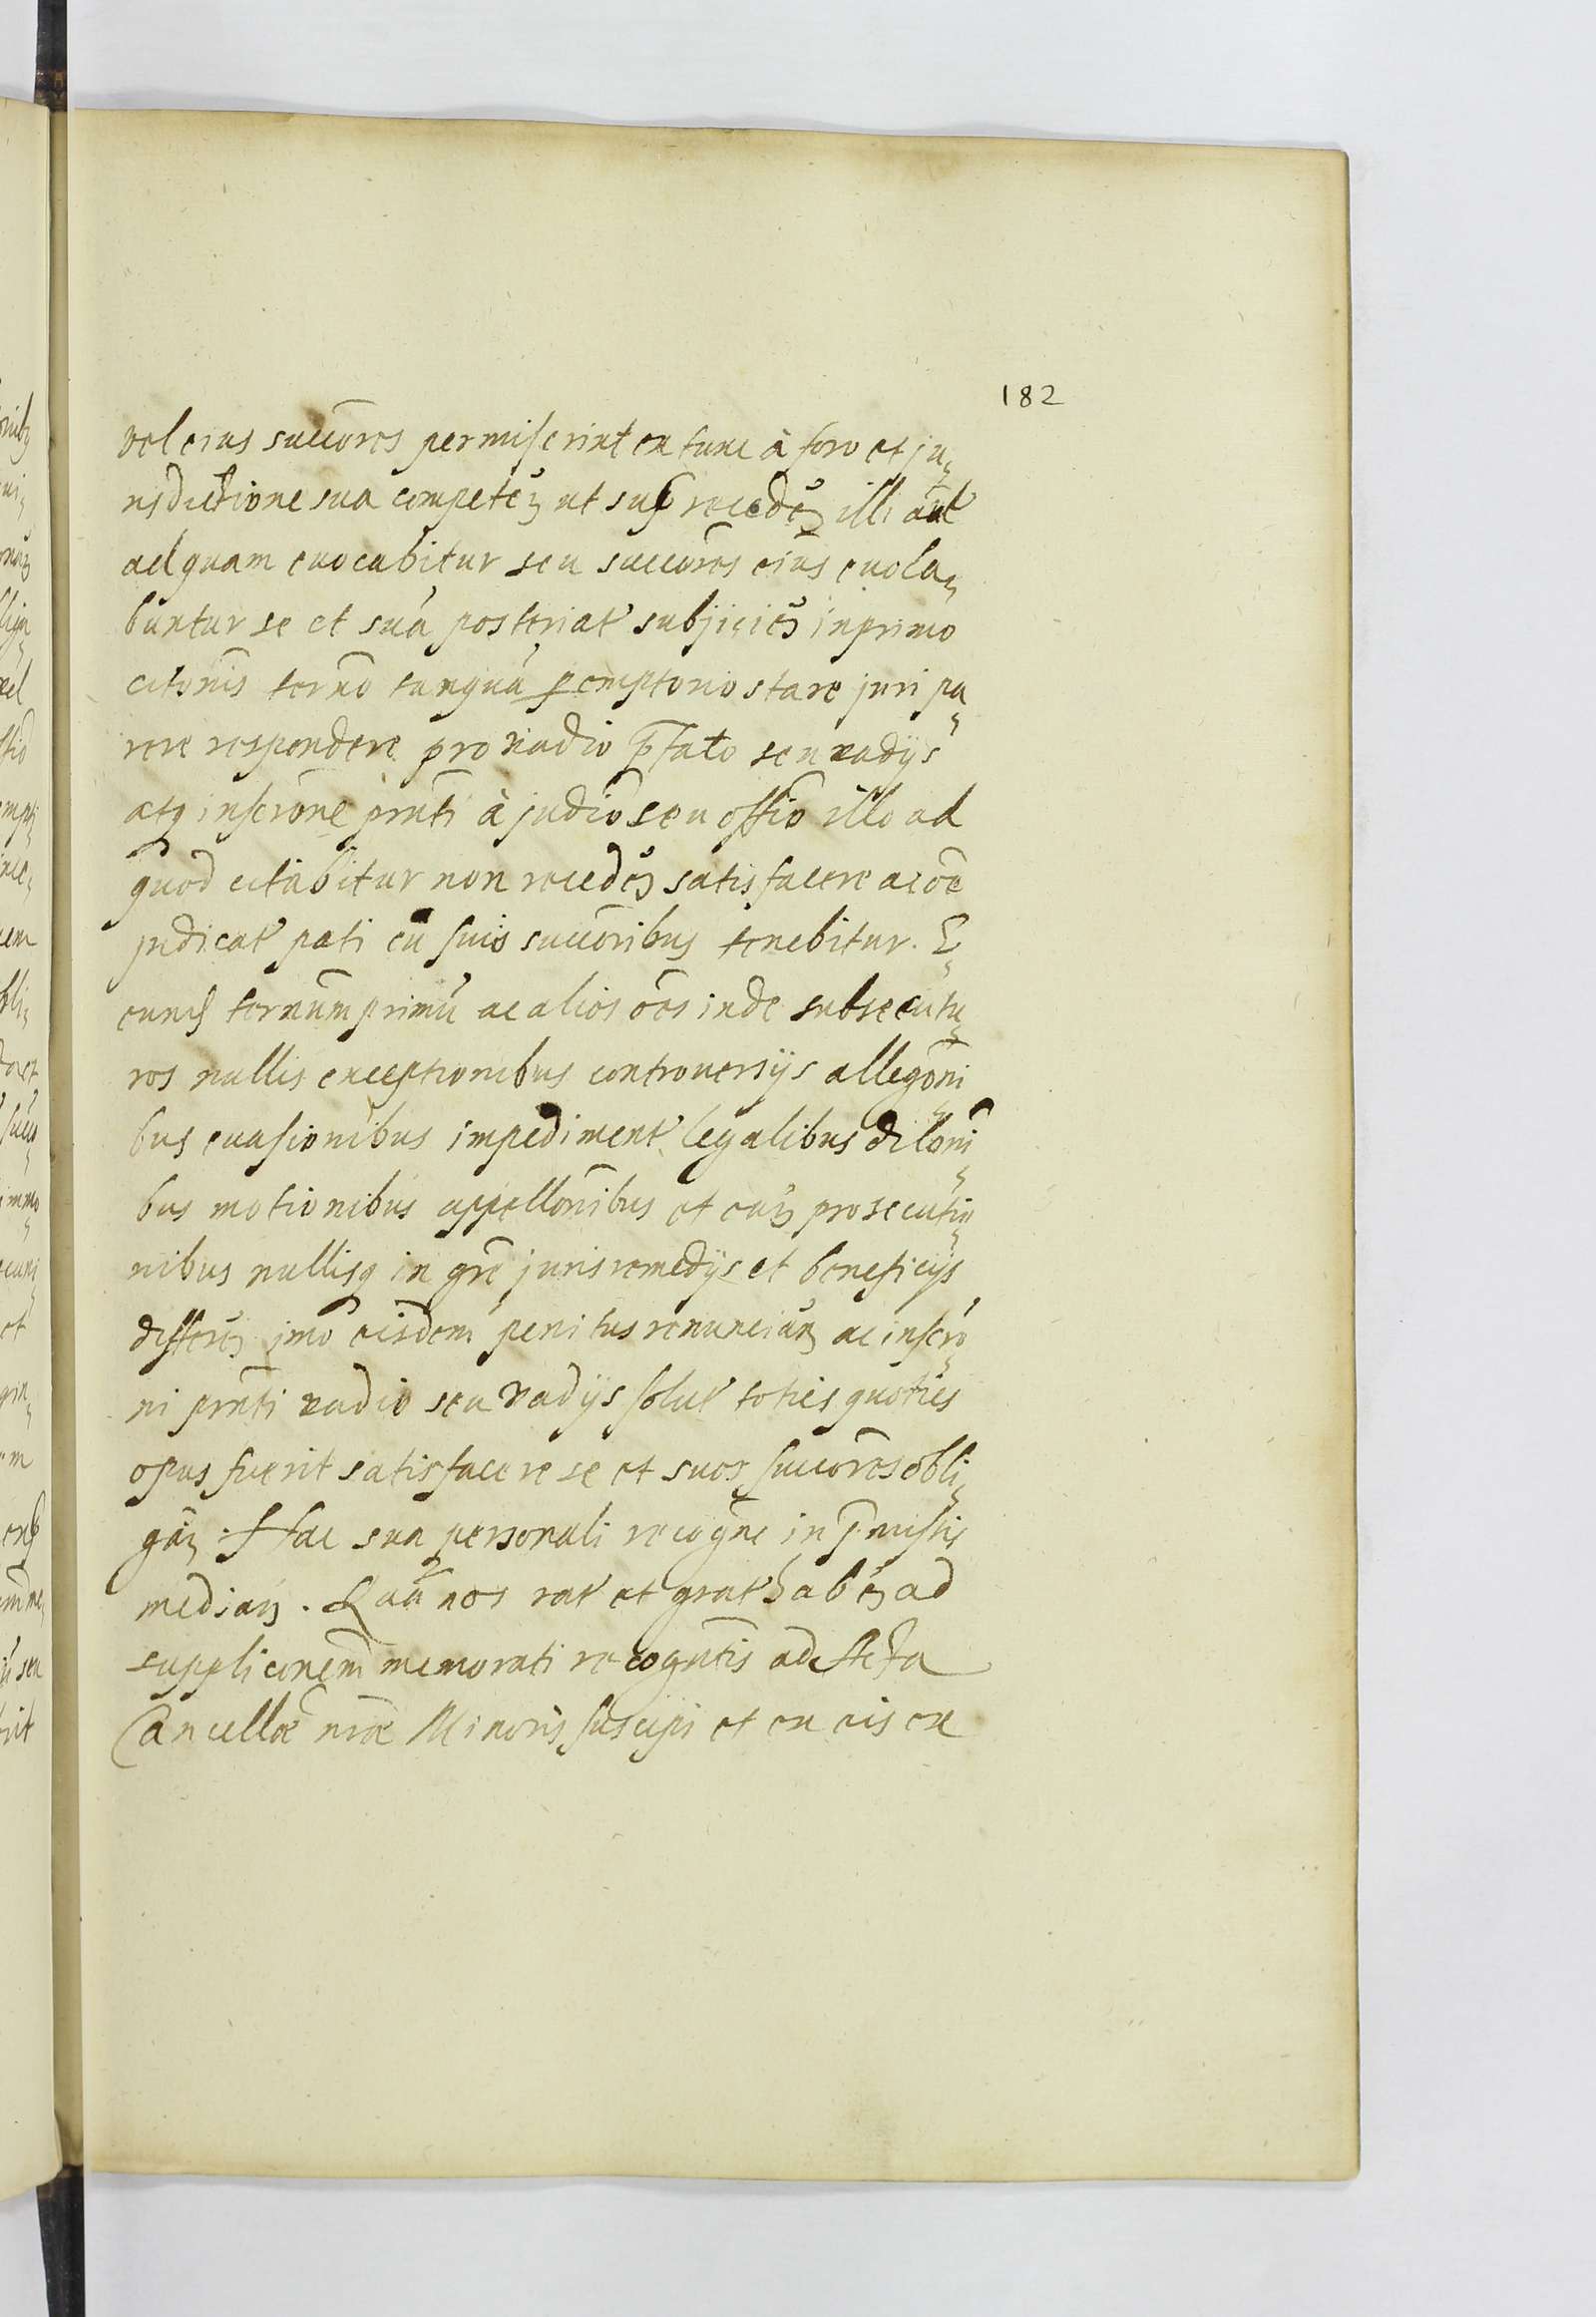 182
vel eius succōres permiserint ex tunc à foro et ju„
risdictione sua competeñ ut sup recedeñ illi aut
ad quam evocabitur seu succōres eius evoca„
buntur se et suā posterìat subjicieñ in primo
citōnis ter̄no tanquā peremptorio stare juri pa„
rere respondere pro vadio p̄fato seu vadijs
atq inscrōne prn̄ti à judicō seu officō illo ad
quod citabitur non recedeñ satisfacere ac oē
judicat pati cū suis succōribus tenebitur. E„
cunq ter̄num primū ac alios oēs inde subsecutu„
ros nullis exceptionibus controversijs allegōni„
bus evasionibus impediment legalibus dilōni„
bus motionibus appellōnibus et eaŗ prosecutio„
nibus nullisq in gn̄re juris remedijs et beneficijs
differeñ imo eisdem penitus renunciañ ac inscrō„
ni prn̄ti vadio seu vadijs solut toties quoties
opus fuerit satisfacere se et suos succōres obli„
gañ. Hac sua personali recogn̄e in p̄missis
mediañ. Quā nos rat et grat habeñ ad
supplicōnem memorati recogn̄tis ad Acta
Cancellæ nr̄æ Minoris suscipi et ex eis ex